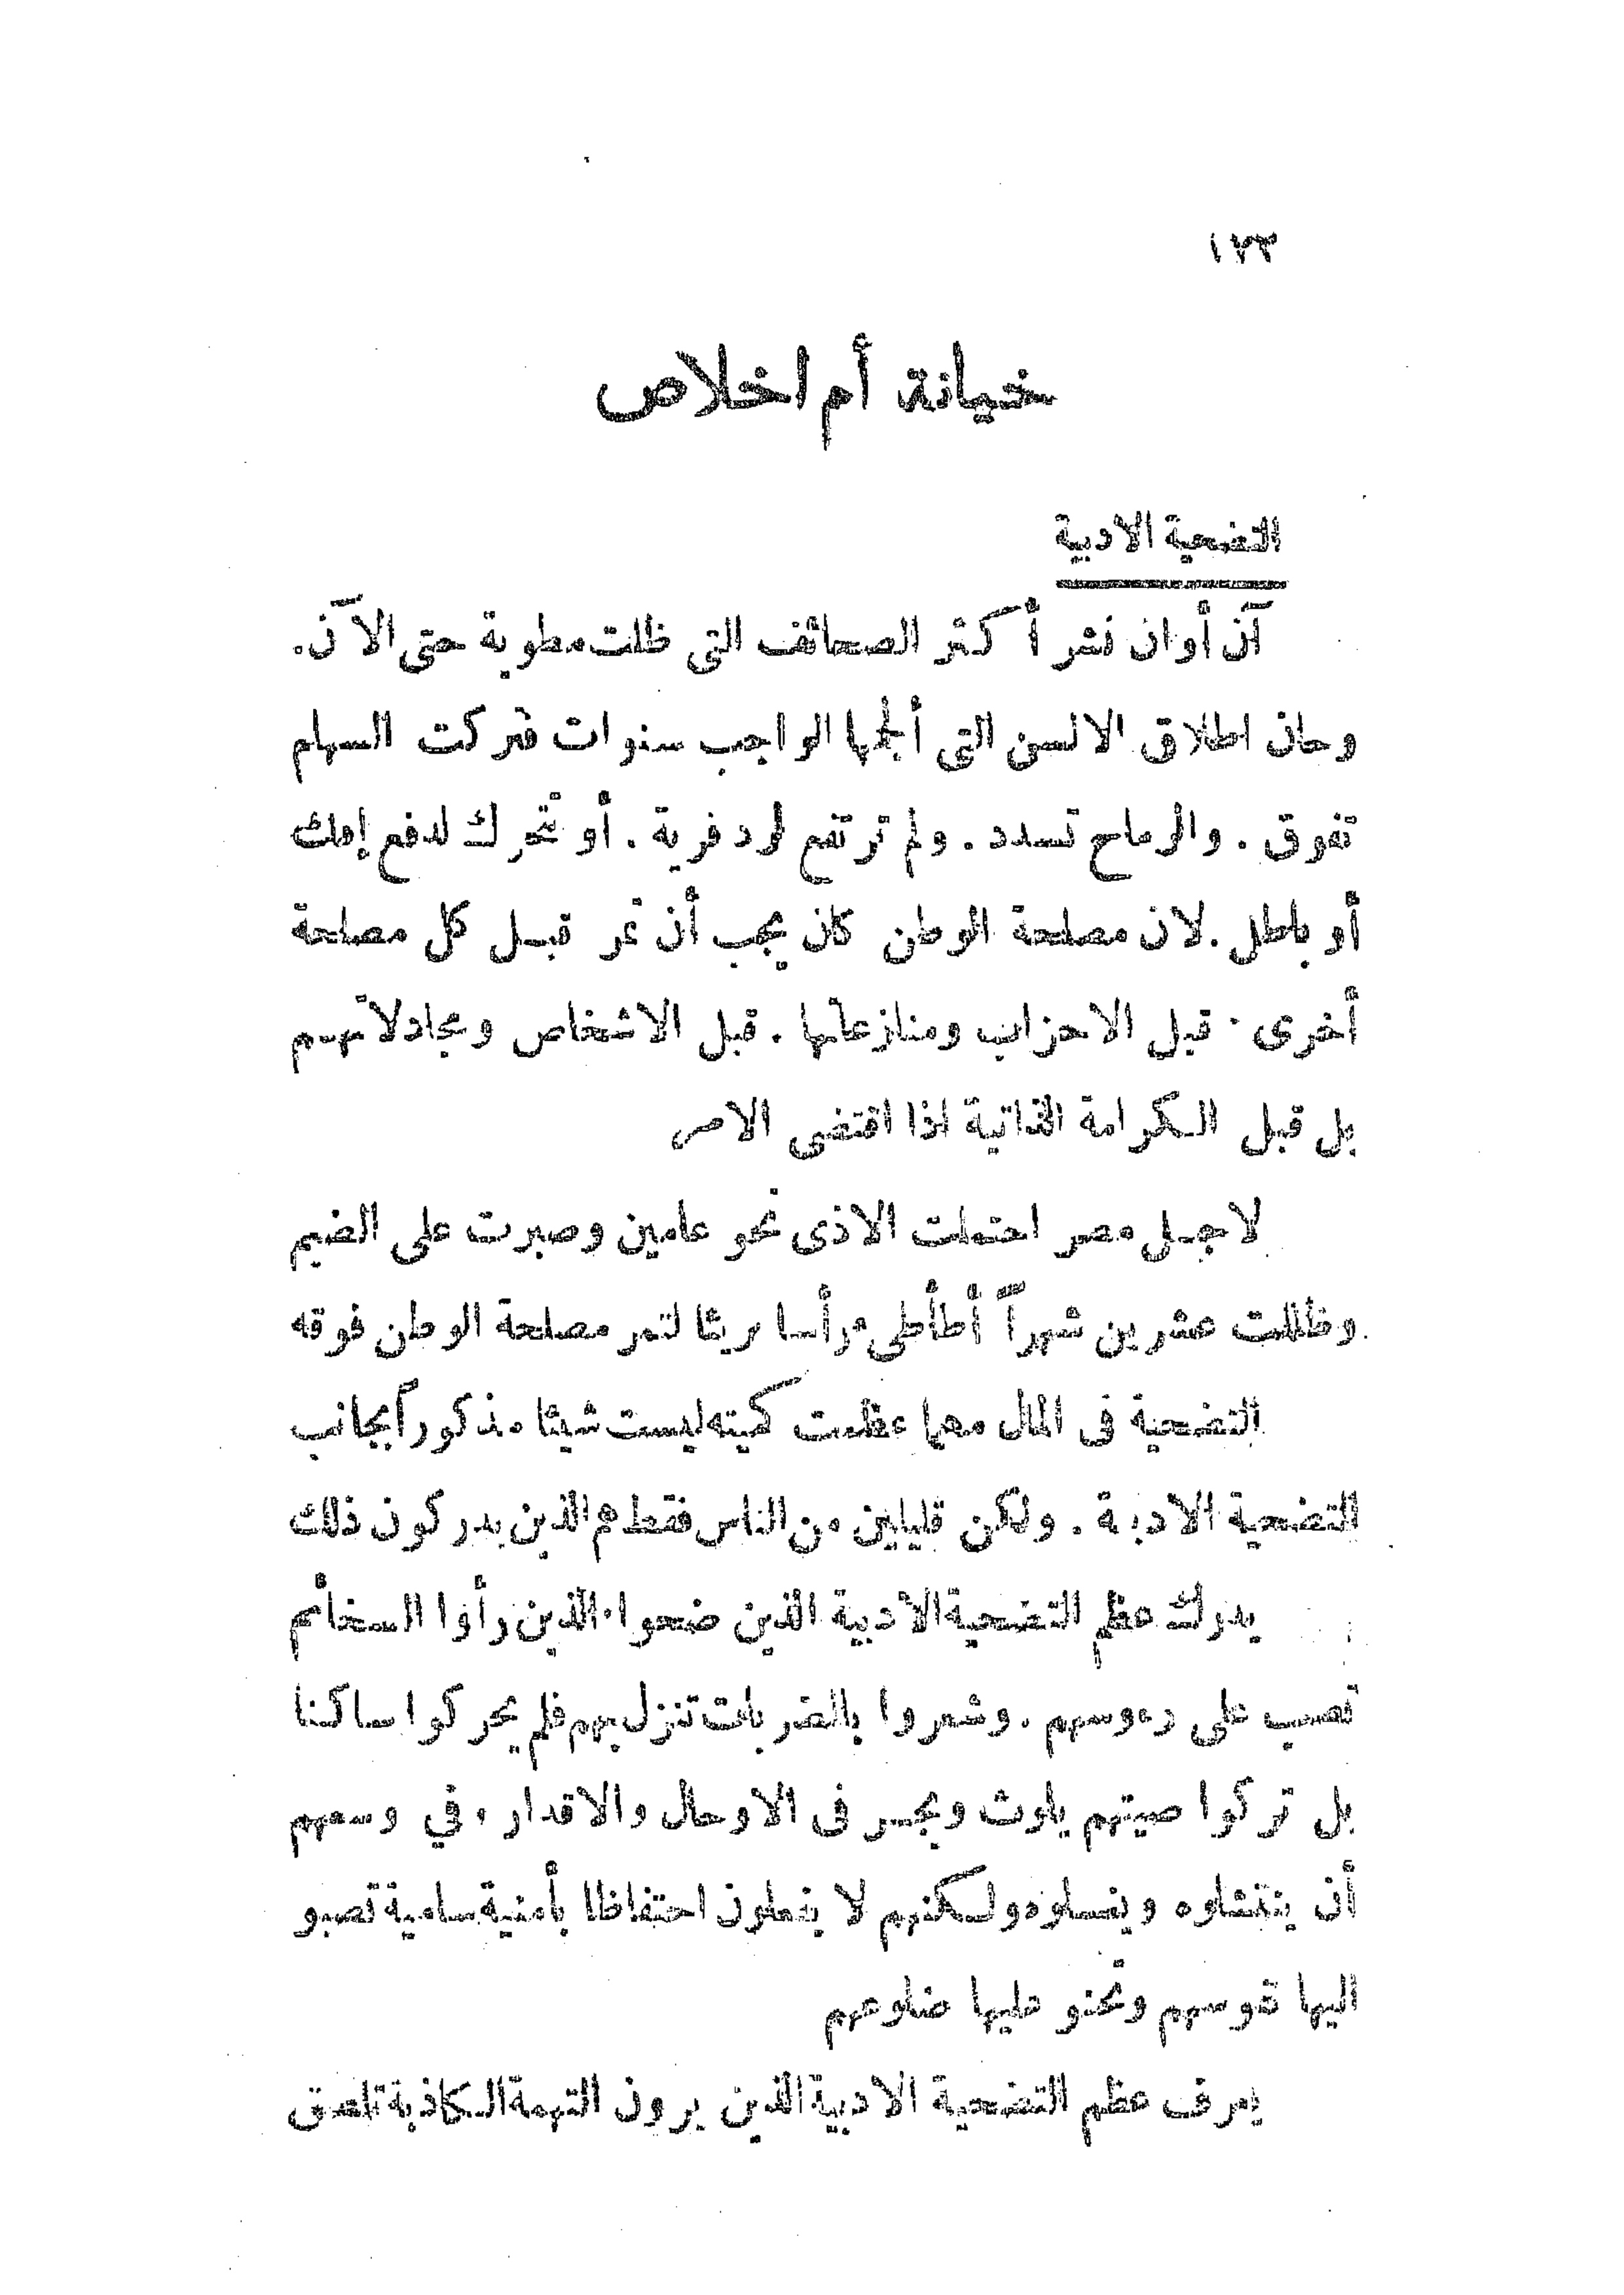 ١٧٣
خيانة أم اخلاص
التضحية الادبية
آن أوان نشر أكثر الصحائف التي ظلت مطوية حتى الآن.
وحان اطلاق الالسن التي ألجمها الواجب سنوات فتركت السهام
تفوق . والرماح تسدد . ولم ترتفع لرد فرية . أو تتحرك لدفع إفك
أو باطل . لان مصلحة الوطن كان يجب أن تمر قبل كل مصلحة
أخرى . قبل الاحزاب ومنازعاتها . قبل الاشخاص ومجادلاتهم
بل قبل الكرامة الذاتية اذا اقتضى الامر
لاجل مصر احتملت الاذى نحو عامين وصبرت على الضيم
وظللت عشرين شهراً أطأطىء رأسا ريثما لتمر مصلحة الوطن فوقه
التضحية فى المال مهما عظمت كميته ليست شيئا مذكوراً بجانب
التضحية الادبية . ولكن قليلين من الناس فقط هم الذين يدركون ذلك
يدرك عظم التضحية الأدبية الذين ضحوا . الذين رأوا السخائم
تصب على رءوسهم . وشعروا بالضربات تنزل بهم فلم يحركوا ساكنا
بل تركوا صيتهم يلوث ويجر فى الاوحال والاقدار ، في وسعهم
أن ينتشلوه ويغسلوه ولكنهم لا يفعلون احتفاظا بأمنية سامية تصبو
اليها نفوسهم وتحنو عليها ضلوعهم
يعرف عظم التضحية الادبية الذين يرون التهمة الكاذبة تلصق